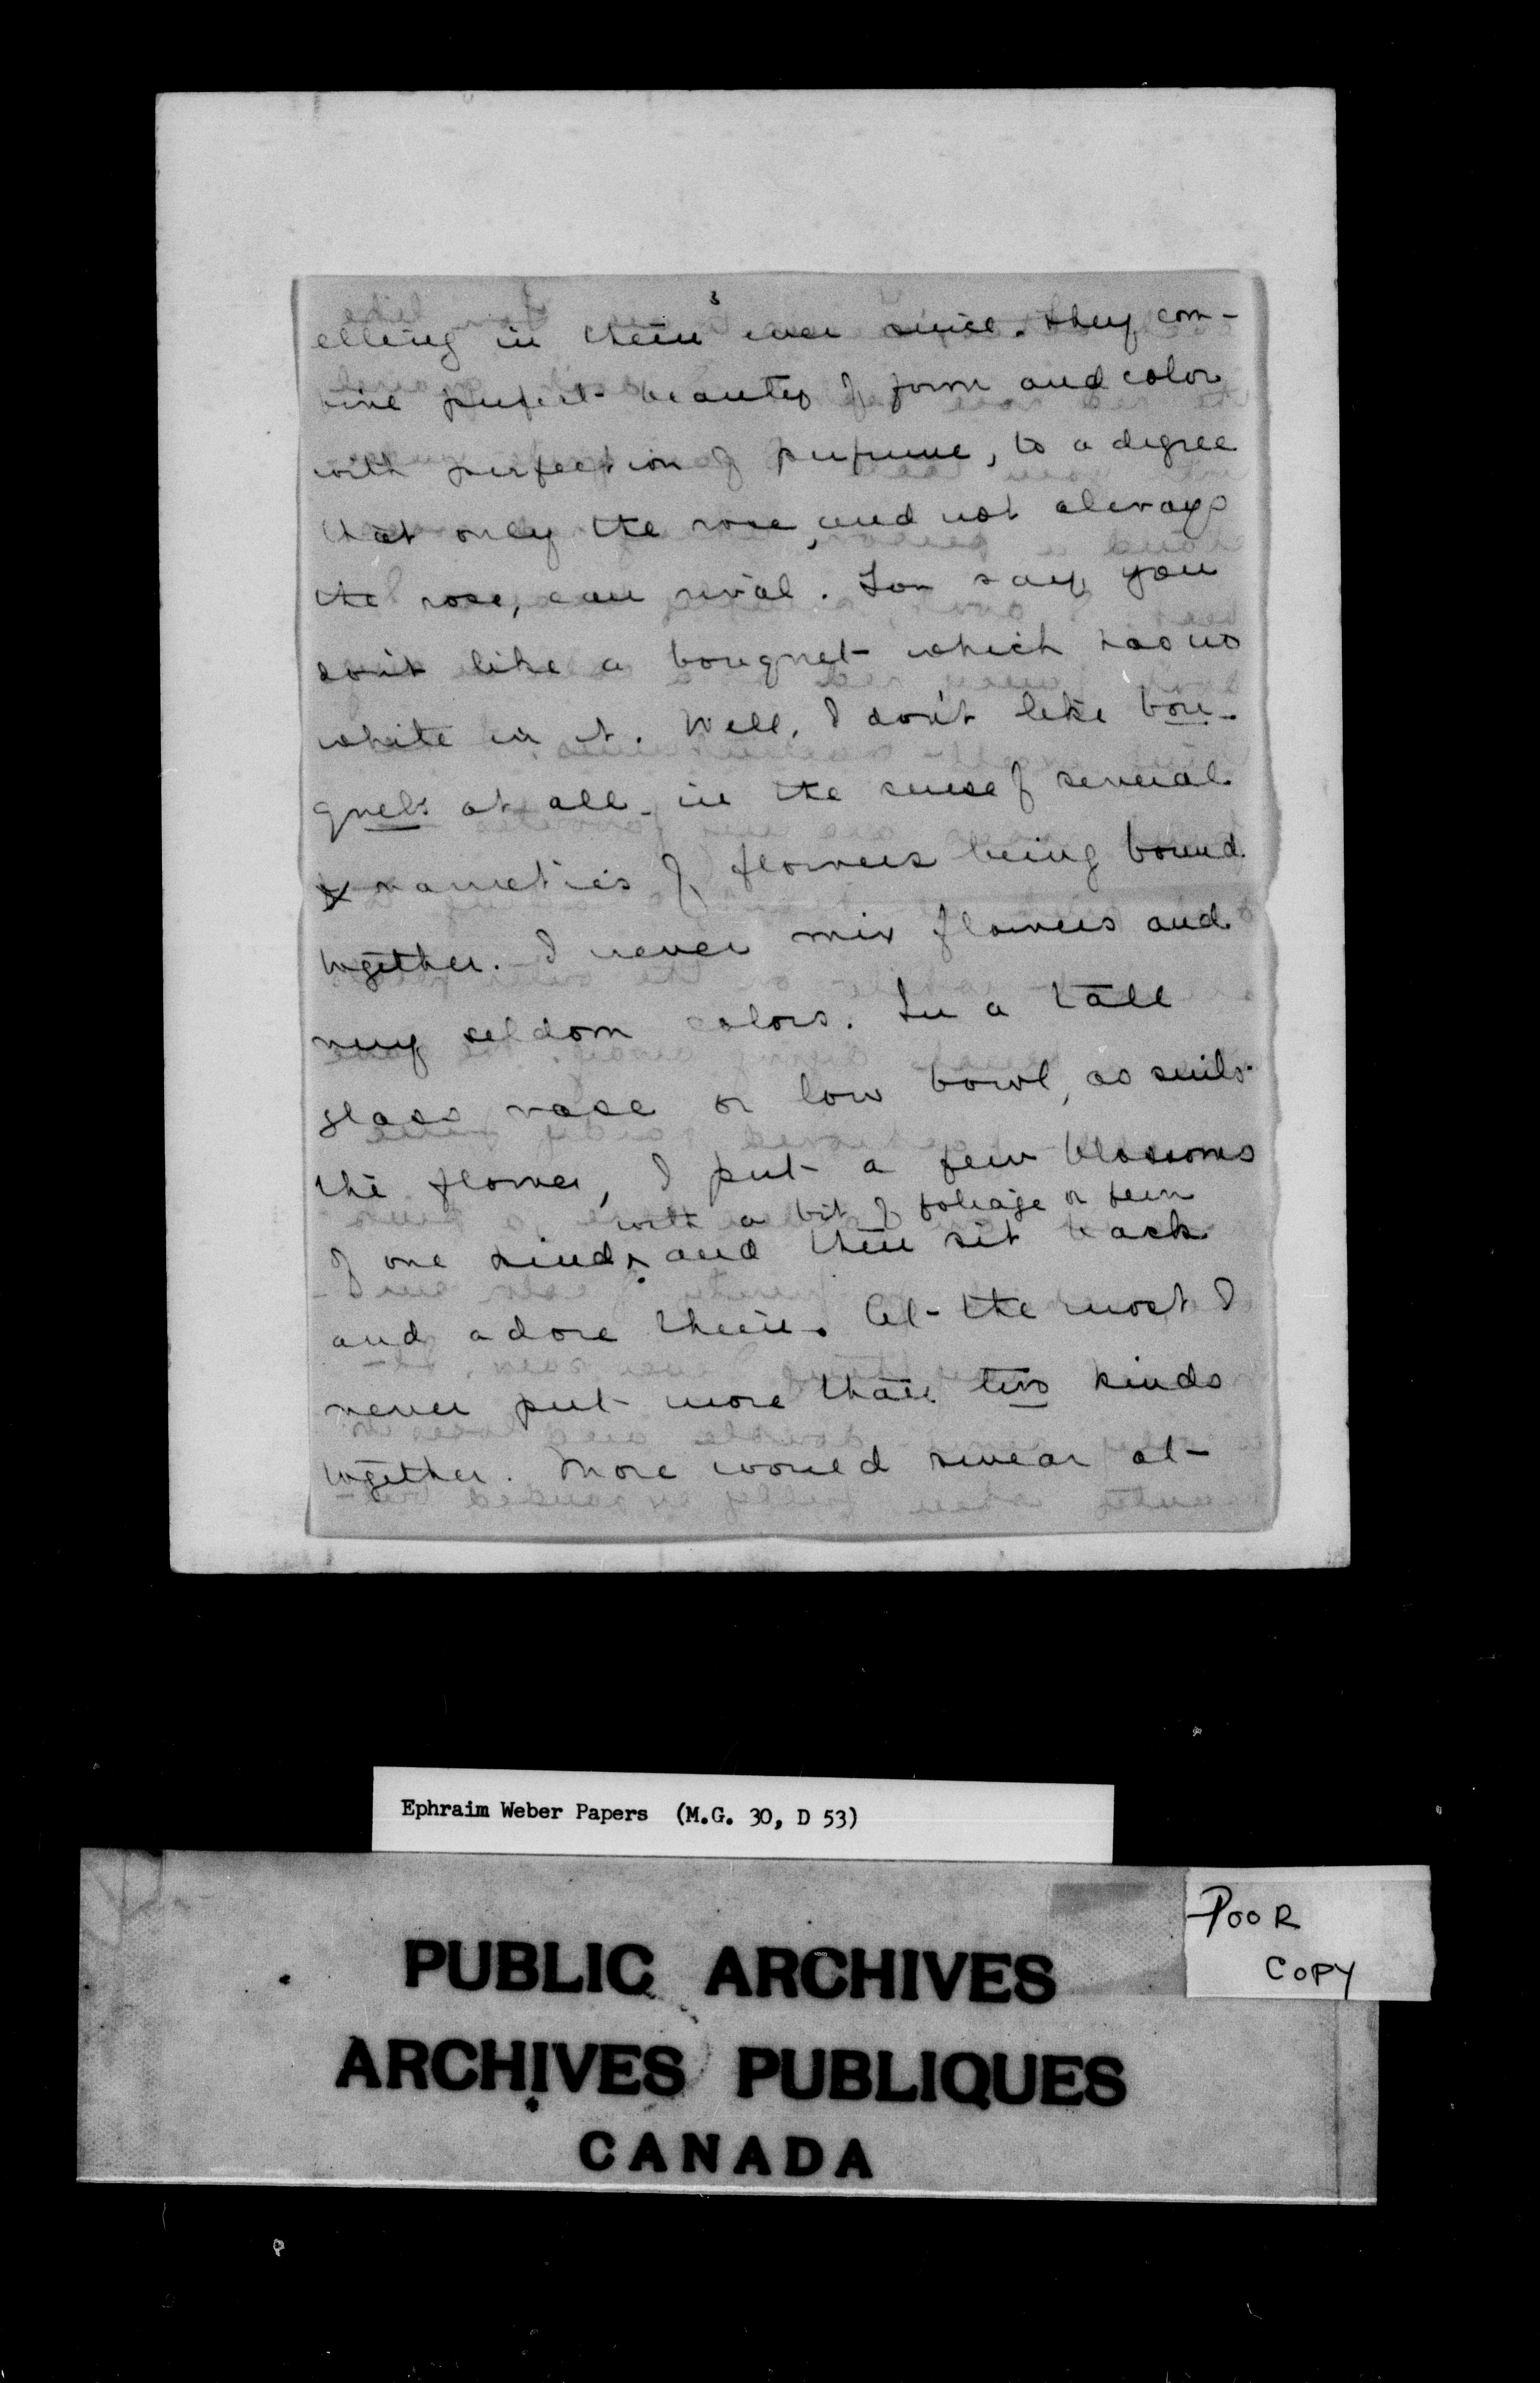 3
elling in them ever since. They com-
bine perfect beauty of form and color
with perfection of perfume, to a degree
that only the rose, and not always
the rose, can rival. You say you
don't like a bouquet which has no
white in it. Well, I don't like bou-
quets at all - in the sense of several
varieties of flowers being bound
together. I never mix flowers and
very seldom colors. In a tall
glass vase or low bowl, as suits
the flower, I put a few blossoms
with a bit of foliage or fern
of one kind, and then sit back
and adore them. At the most I
never put more than two kinds
together. More would swear at
Ephraim Weber Papers (M.G. 30, D 53)
POOR
COPY
PUBLIC ARCHIVES
ARCHIVES PUBLIQUES
CANADA